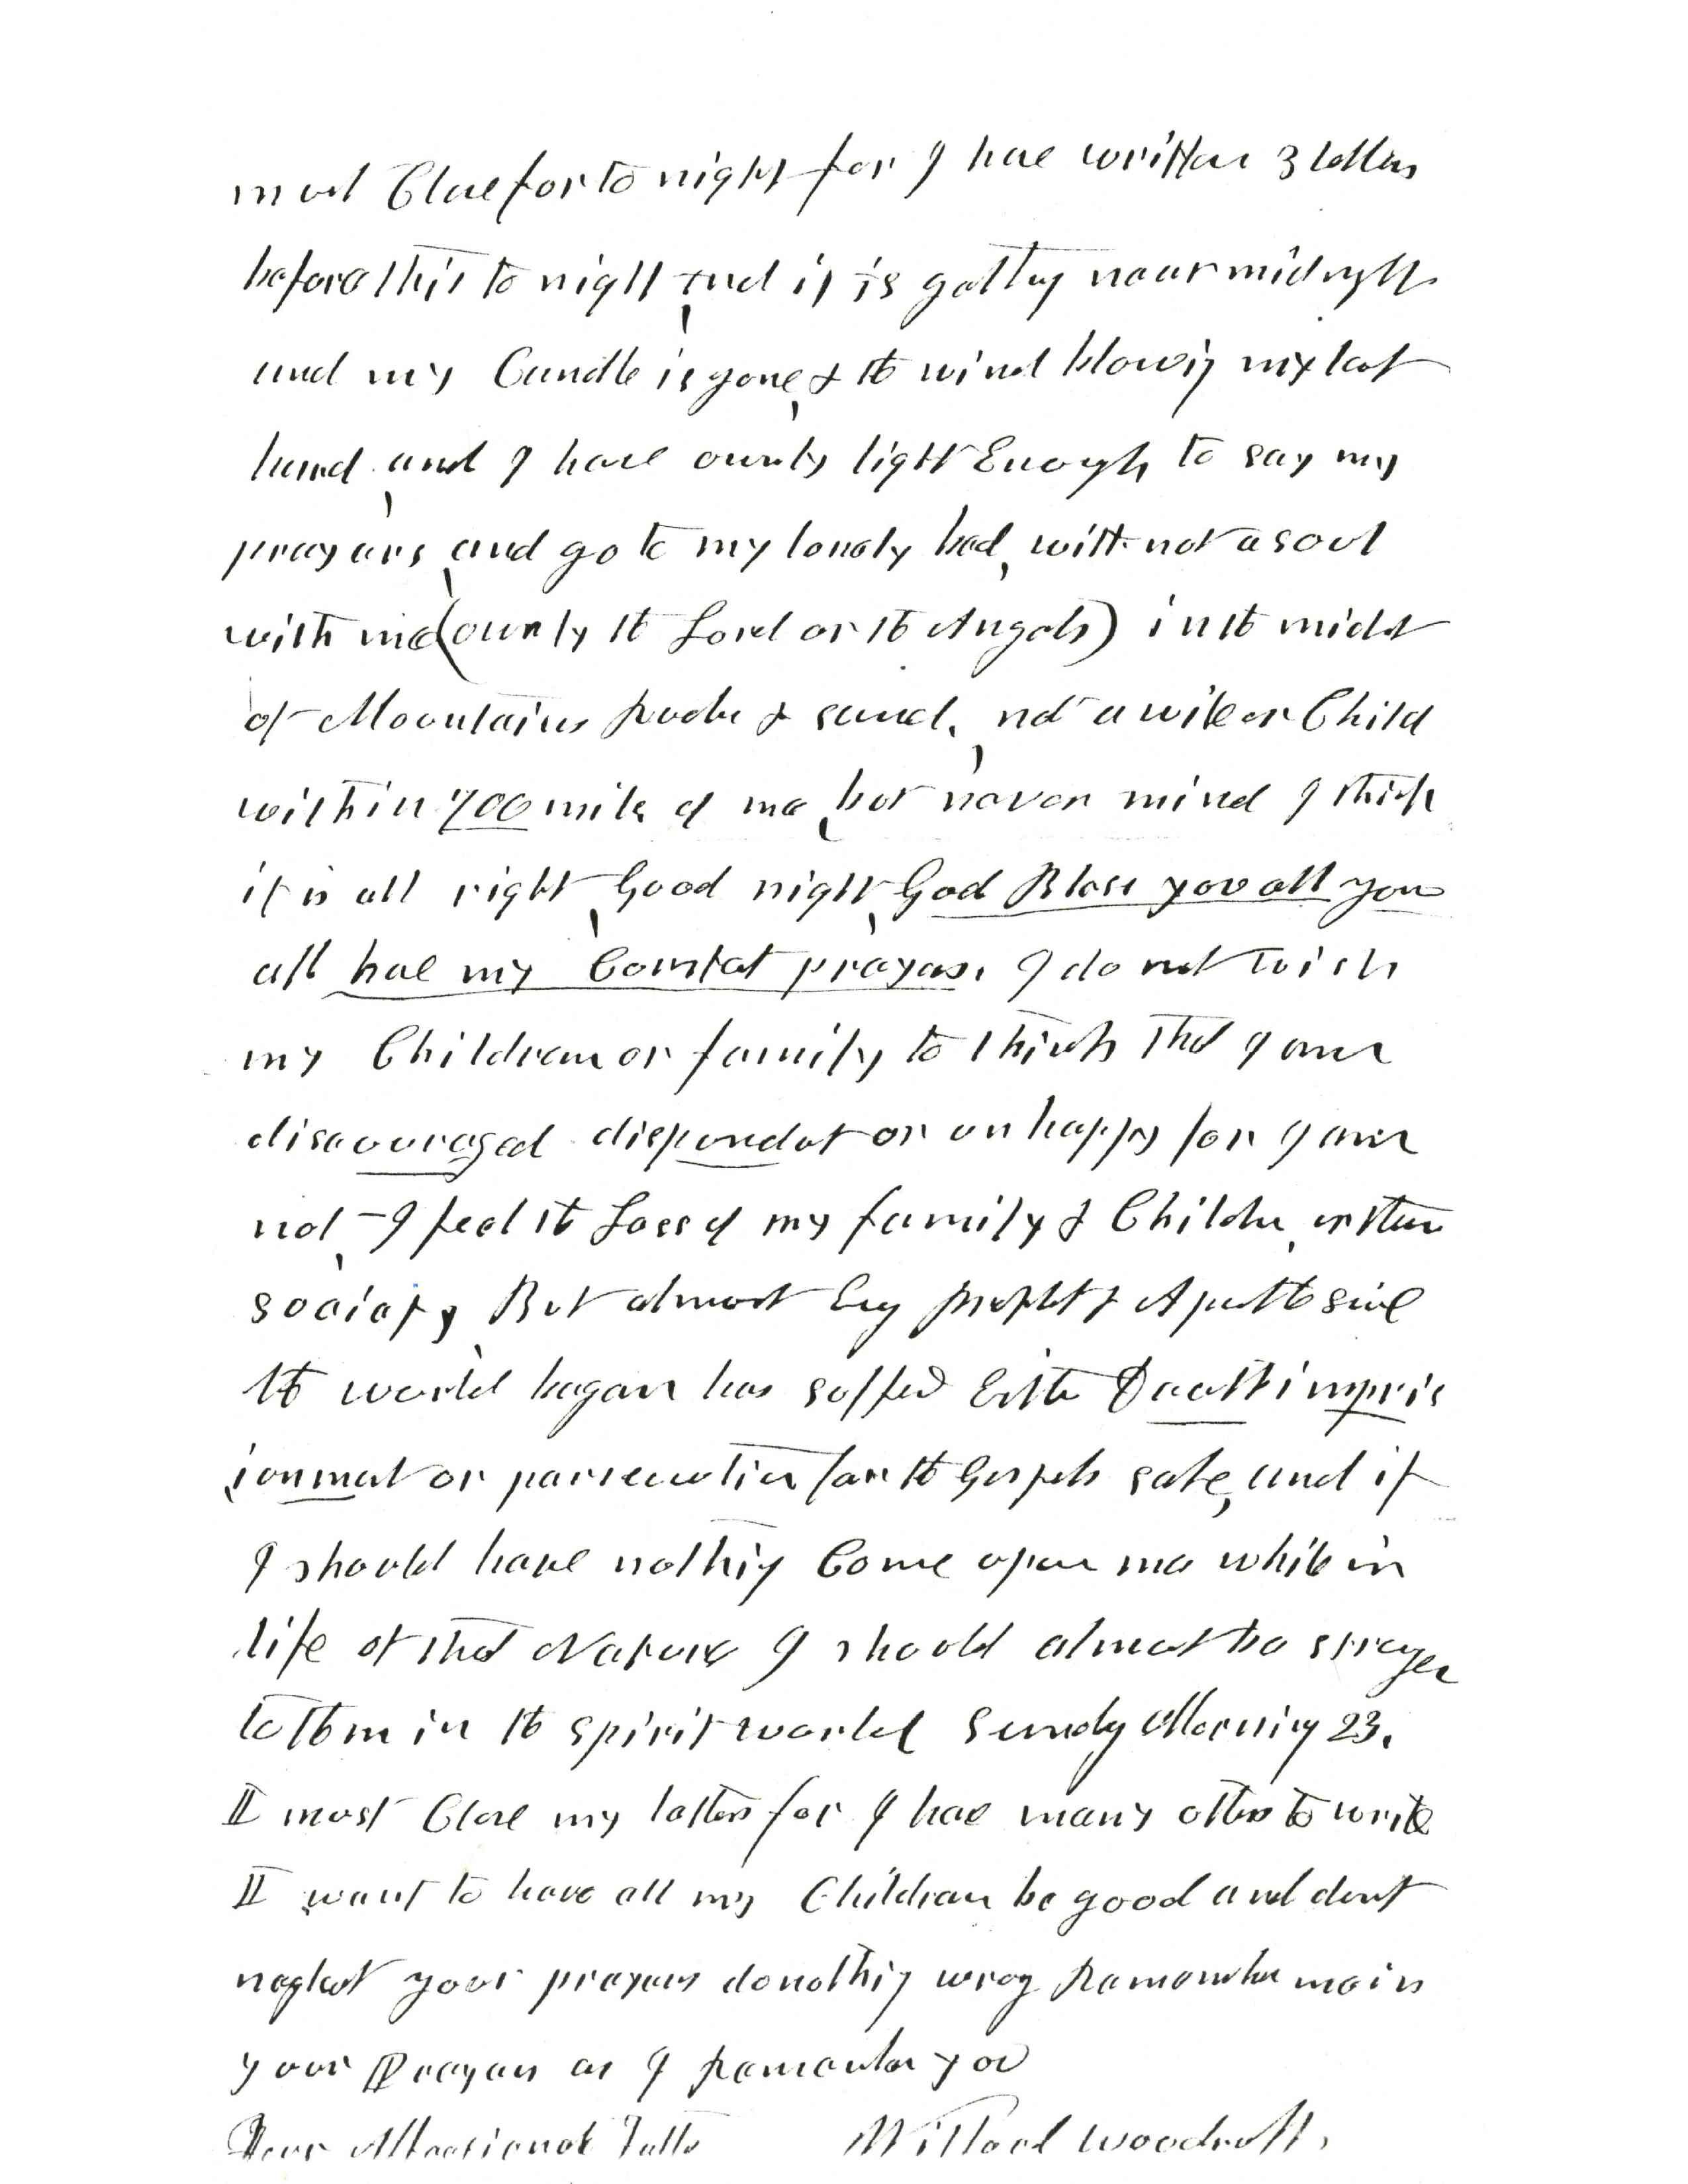 must Close for to night for I have written 3 letters
before this to night, and it is getting near midnight
and my Candle is gone, & the wind blowing my last
and I have ownly light Enough to say my
prayers, and go to my lonely bed, with not a soul
with me (ownly the Lord or the Angels) in the midst
of Mountains Rocks & sand, not a wife or Child
within 700 miles of me, but never mind I think
it is all right, Good night, God Bless you all you
all have my Constant prayers. I do not wish
my Children or family to think that I am
discouraged dispondet or unhappy for I am
not, I feel the Loss of my family & Children, or their
society, But almost Evry prophet & Apostle since
the world began has suffed Either Death impris
ionmet or persecution for the Gospels sake, and if
I should have nothing Come upon me while in
life of that Nature I should almost be strager
to them in the spirit world Sundy Morning 23.
I must Close my letter for I have many others to write
I want to have all my Children be good and dont
neglect your prayers do nothing wrog Remember me in
your Prayers as I Remember you
Your Affectionate Father Wilford Woodruff.